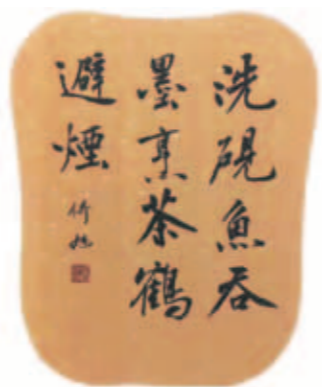 洗硯魚吞
墨烹茶鶴
避煙